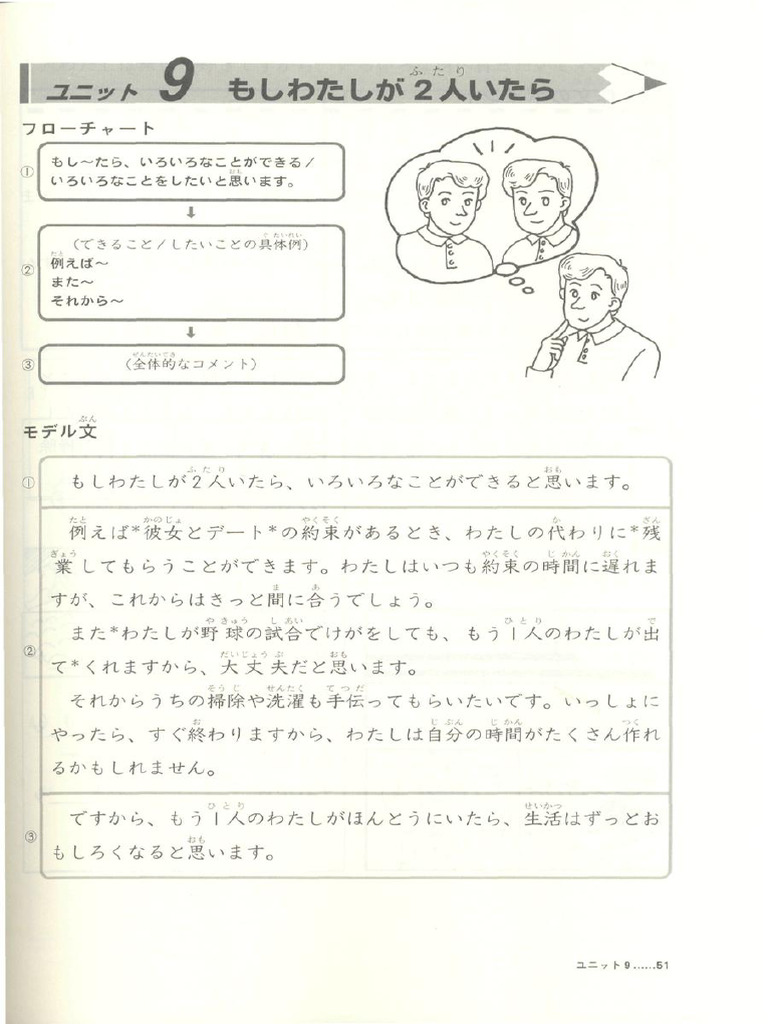 ユニット 9 もしわたしが2人いたら
フローチャート
① もし～たら、いろいろなことができる/
いろいろなことをしたいと思います。
↓
(できること/したいことの具体例)
② 例えば～
また～
それから～
↓
③ (全体的なコメント)
モデル文
① もしわたしが2人いたら、いろいろなことができると思います。
例えば*彼女とデート*の約束があるとき、わたしの代わりに*残
業してもらうことができます。わたしはいつも約束の時間に遅れま
すが、これからはきっと間に合うでしょう。
② また*わたしが野球の試合でけがをしても、もう1人のわたしが出
て*くれますから、大丈夫だと思います。
それからうちの掃除や洗濯も手伝ってもらいたいです。いっしょに
やったら、すぐ終わりますから、わたしは自分の時間がたくさん作れ
るかもしれません。
③ ですから、もう1人のわたしがほんとうにいたら、生活はずっとお
もしろくなると思います。
ユニット9……51